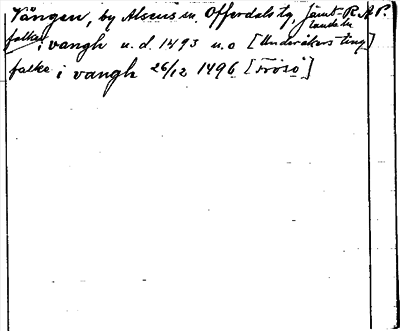 Vången, by Alsens sn. Offerdals tg, Jämt- R.A.P.
lands ln
falke i vangh u. d. 1493 u. o [Undersåkers ting]
falke i vangh 26/12 1496 [Frösö]